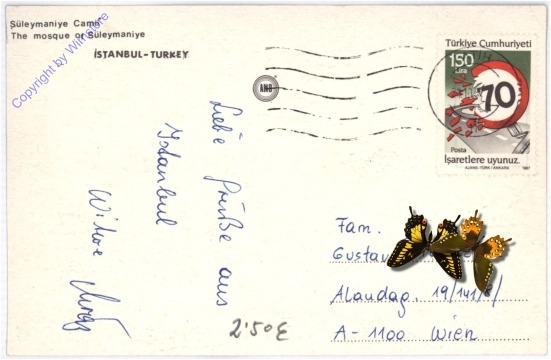 Süleymaniye Camii
The mosque of Süleymaniye
İSTANBUL-TURKEY
Copyright by Winstore
AND
Türkiye Cumhuriyeti
150
Lira
70
Posta
İşaretlere uyunuz.
AJANS-TÜRK / ANKARA
1987
Liebe Grüße aus
Istanbul
Fam.
Gustav
Alaudag. 19/141/8/
A-1100 Wien
2.50€